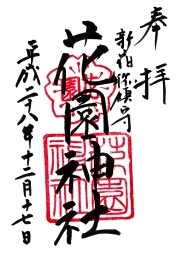 奉拝
新宿総鎮守
花園神社
平成二十八年十二月十七日